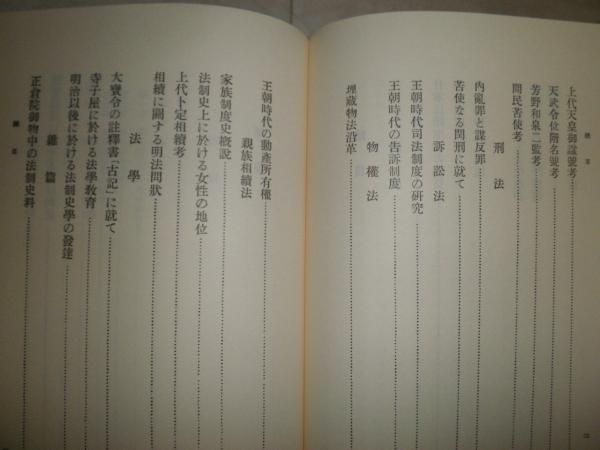 上代天皇御諡號考
天武令位階名號考
芳野和泉二監考
問民苦使考
刑法
內亂罪と謀反罪
苦使なる閏刑に就て
訴訟法
王朝時代司法制度の研究
王朝時代の告訴制度
物權法
埋藏物法沿革
王朝時代の動產所有權
親族相續法
家族制度史槪說
法制史上に於ける女性の地位
上代卜定相續考
相續に關する明法問狀
法學
大寶令の註釋書「古記」に就て
寺子屋に於ける法學敎育
明治以後に於ける法制史學の發達
雜篇
正倉院御物中の法制史料